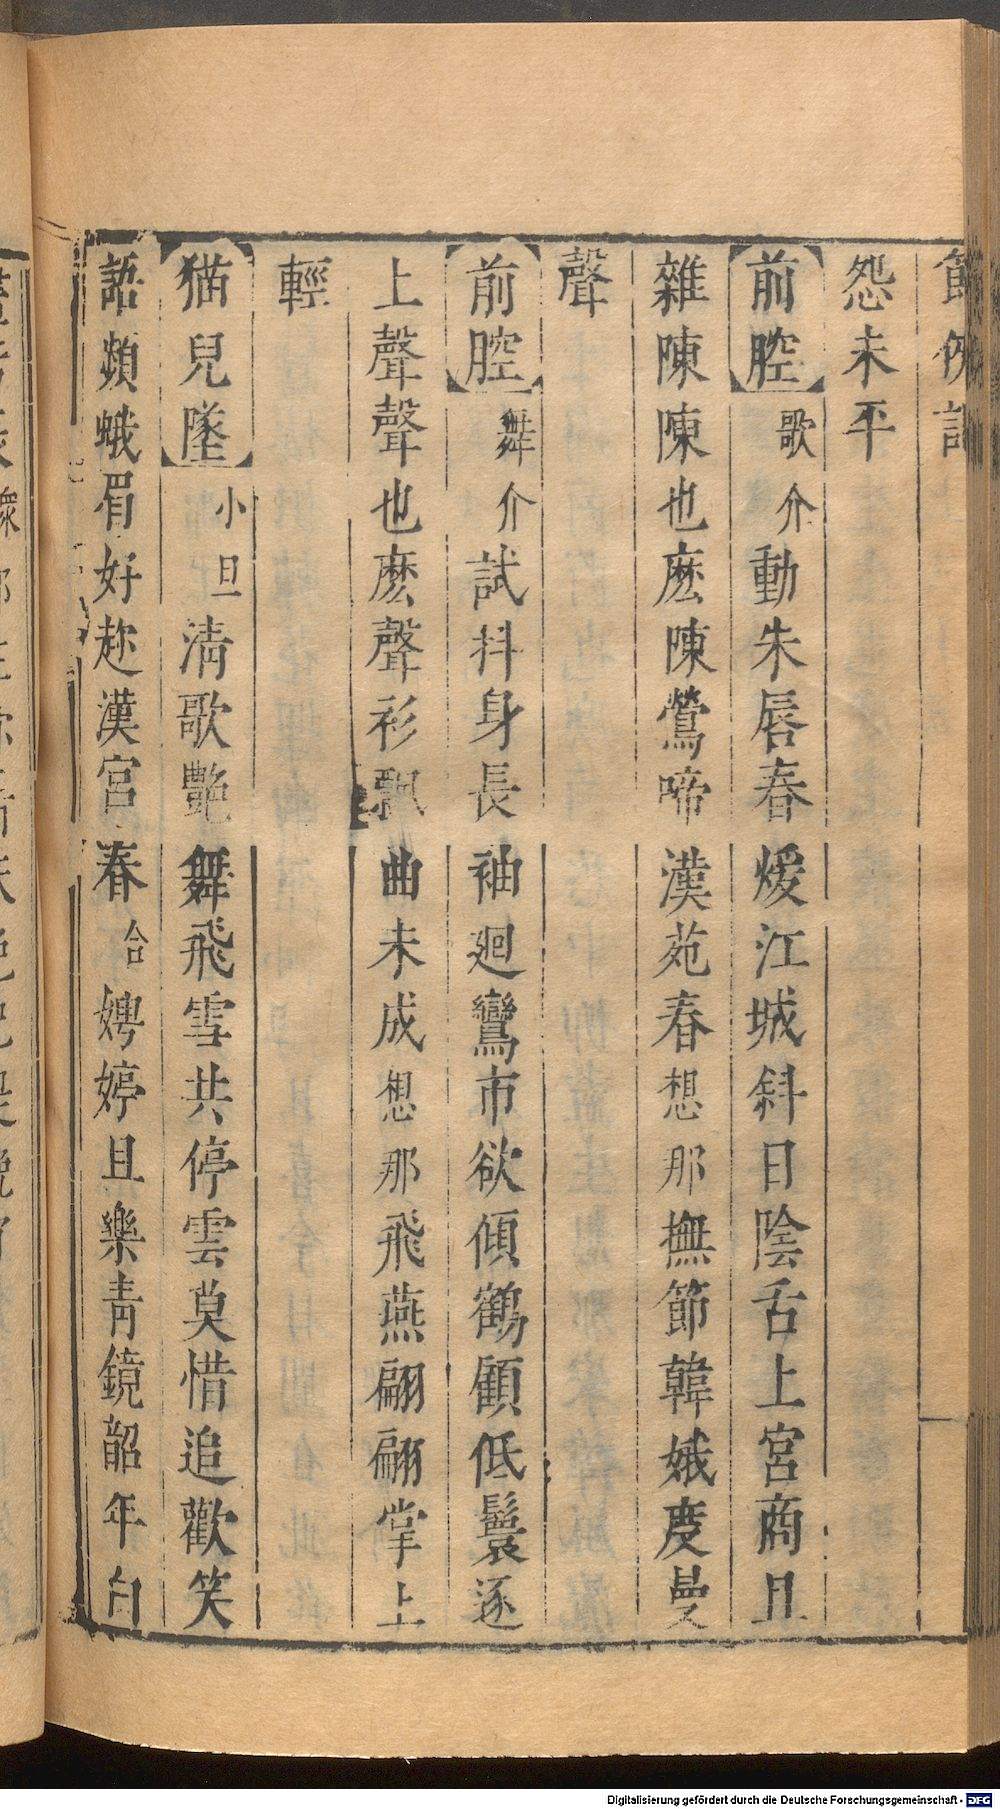 怨未平
前腔 歌介 動朱唇春煖江城斜日陰舌上宮商且
雜陳陳也麽陳鶯啼漢苑春想那撫節韓娥度曼
聲
前腔 舞介 試抖身長袖廻鸞市欲傾鶴顧低鬟逐
上聲聲也麽聲衫飄曲未成想那飛燕翩翩掌上
輕
猫兒墜 小旦 淸歌艷舞飛雪共停雲莫惜追歡笑
語頻蛾眉好趂漢宮春 合 娉婷且樂靑鏡韶年白
Digitalisierung gefördert durch die Deutsche Forschungsgemeinschaft - DFG